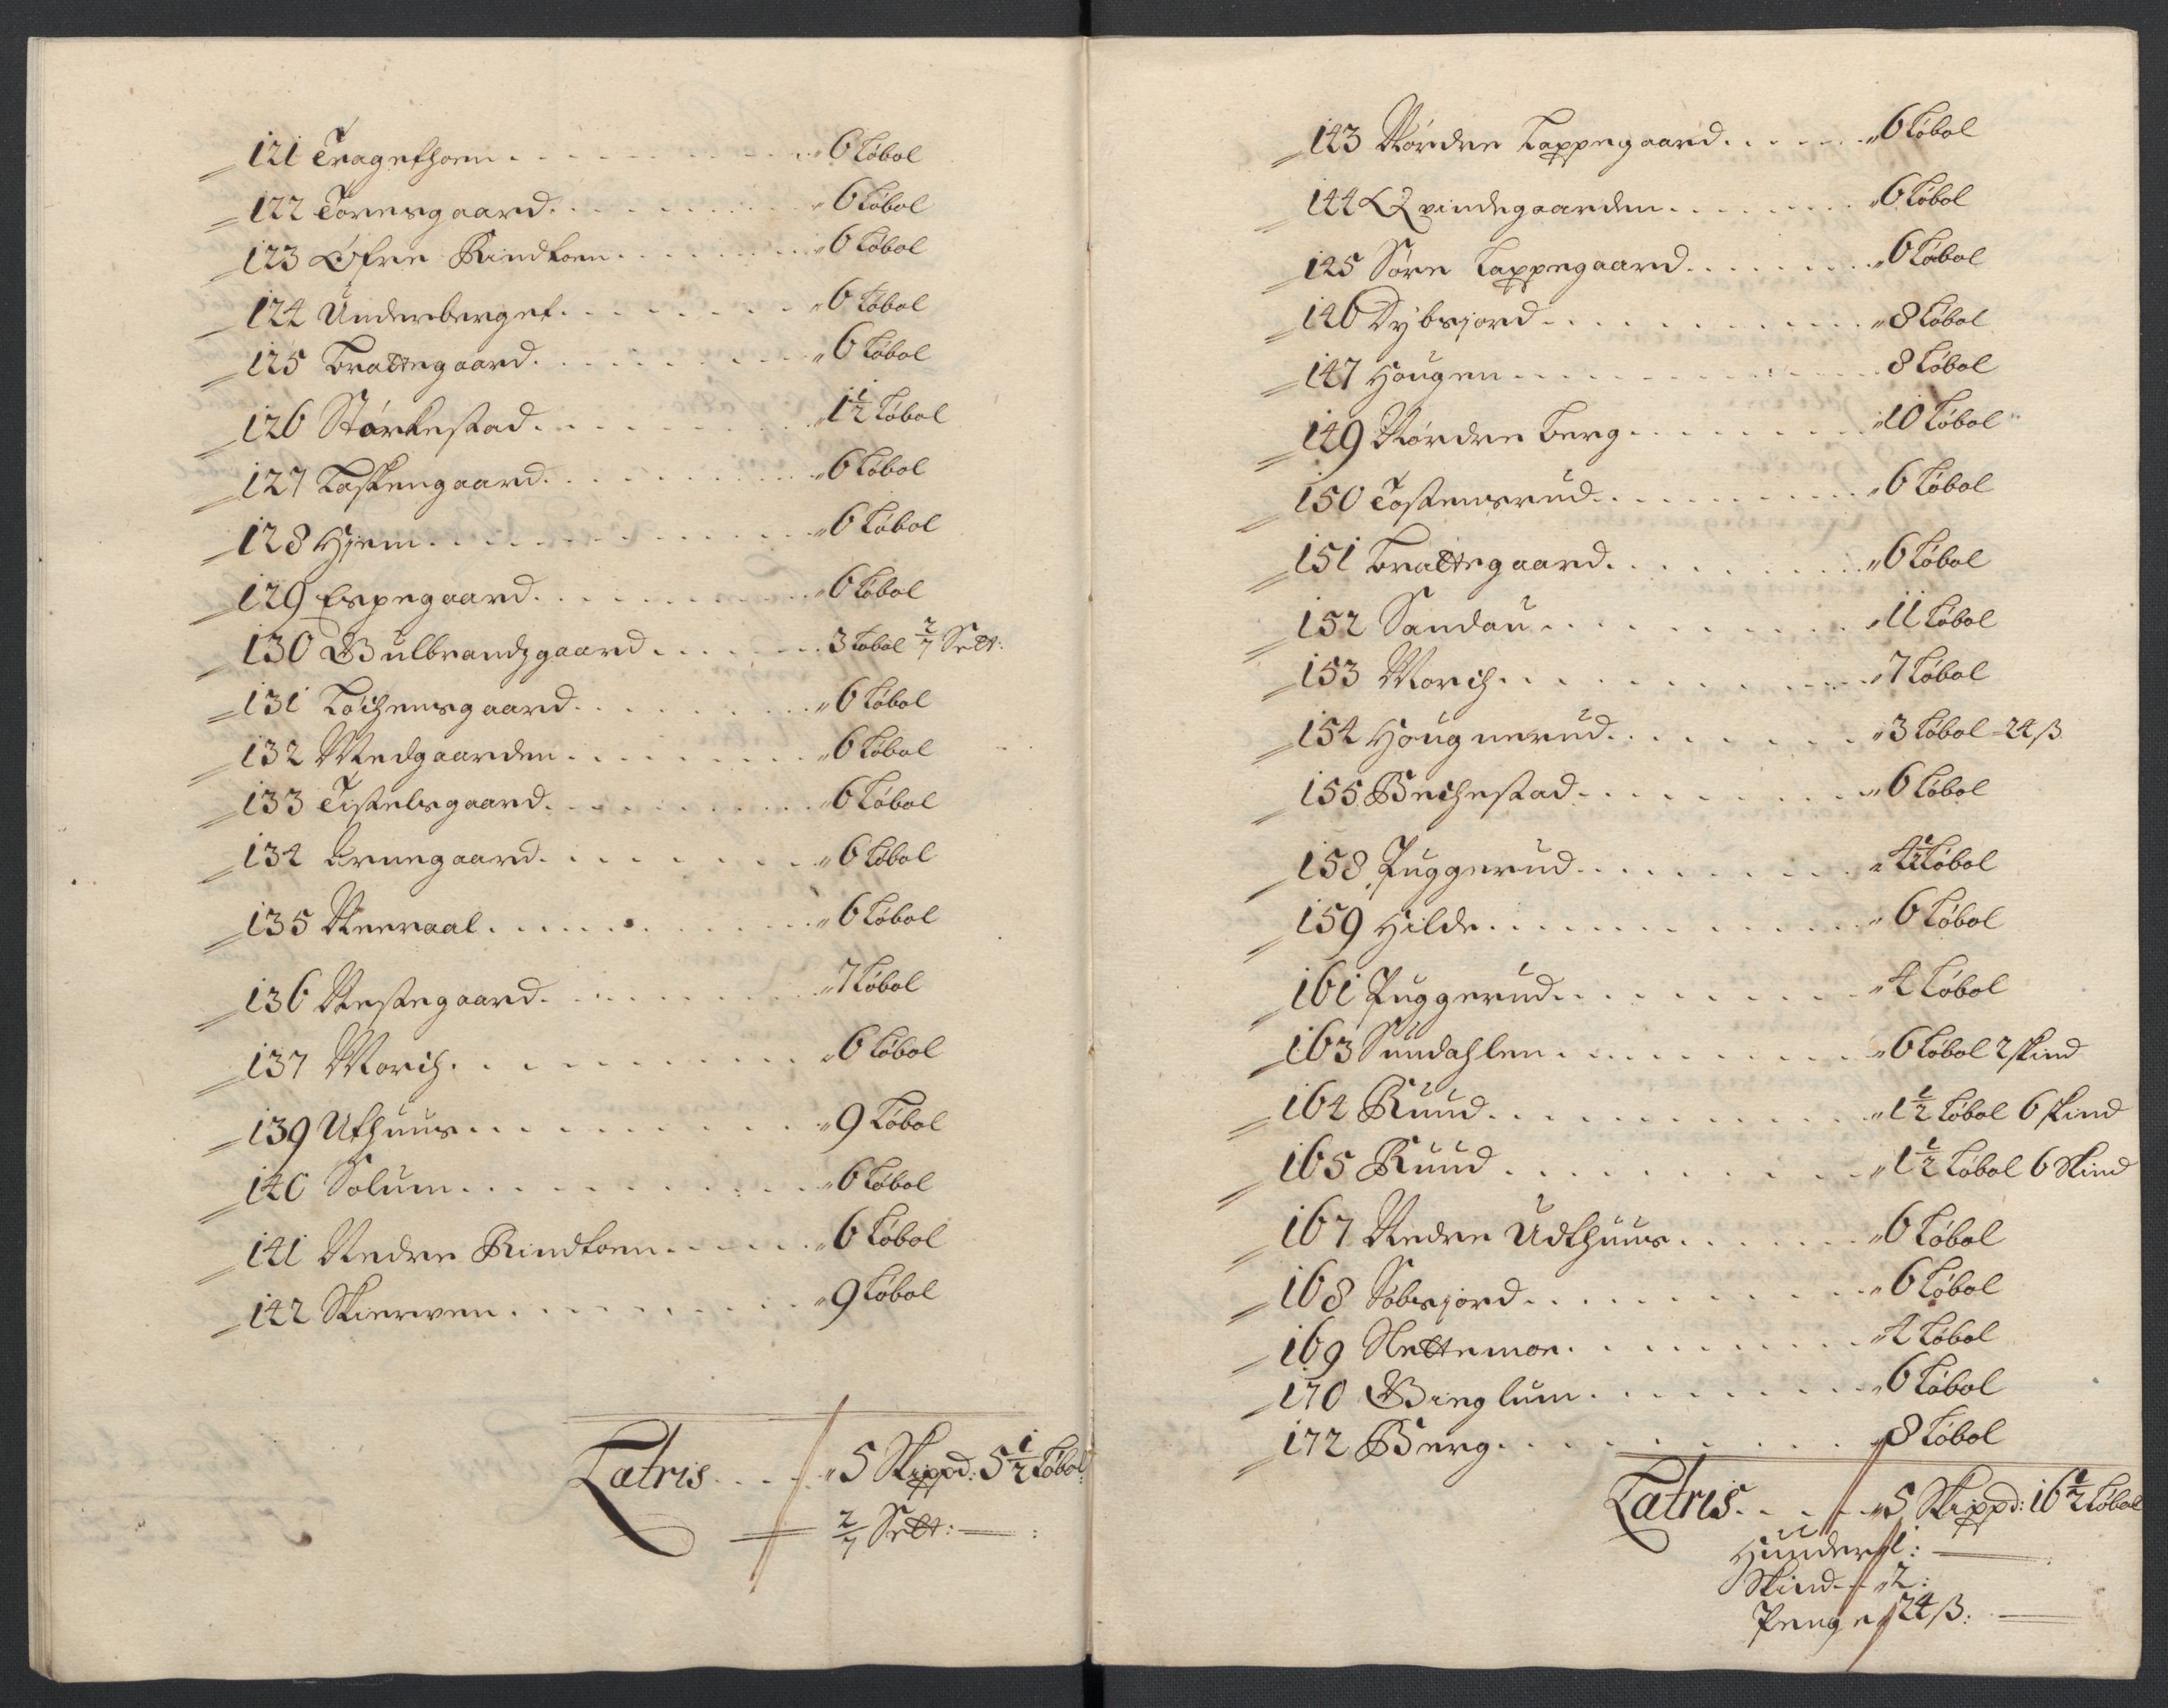 121 Tragethoen . . . 6 Løbol
122 Toresgaard . . . 6 Løbol
123 Øfre Rindtoen . . . 6 Løbol
124 Underberget . . . 6 Løbol
125 Brattegaard . . . 6 Løbol
126 Storkestad . . . 1½ Løbol
127 Laskengaard . . . 6 Løbol
128 Hjem . . . 6 Løbol
129 Espegaard . . . 6 Løbol
130 Gulbrandzgaard . . . 3 Løbol 2/7 Sett:
131 Løchensgaard . . . 6 Løbol
132 Medgaarden . . . 6 Løbol
133 Tistelsgaard . . . 6 Løbol
134 Arnegaard . . . 6 Løbol
135 Neeraal . . . 6 Løbol
136 Nestegaard . . . 7 Løbol
137 Morch . . . 6 Løbol
139 Uthuus . . . 9 Løbol
140 Solum . . . 6 Løbol
141 Nedre Rindtoen . . . 6 Løbol
142 Skierven . . . 9 Løbol
Latris . . . 5 Skippd: 5½ Løbol:
2/7 Sett:
143 Nordre Loppegaard . . . 6 Løbol
144 Qvindegaarden . . . 6 Løbol
145 Søre Loppegaard . . . 6 Løbol
146 Dybsjord . . . 8 Løbol
147 Hougen . . . 8 Løbol
149 Nordre Berg . . . 10 Løbol
150 Tostensrud . . . 6 Løbol
151 Brattegaard . . . 6 Løbol
152 Sandau . . . 11 Løbol
153 Morch . . . 7 Løbol
154 Hougnerud . . . 3 Løbol - 24 ß
155 Bechestad . . . 6 Løbol
158 Puggerud . . . 4½ Løbol
159 Hilde . . . 6 Løbol
161 Puggerud . . . 4 Løbol
163 Sundahlen . . . 6 Løbol 2 skind
164 Ruud . . . 1½ Løbol 6 skind
165 Ruud . . . 1½ Løbol 6 Skind
167 Nedre Udthuus . . . 6 Løbol
168 Søbsjord . . . 6 Løbol
169 Slettemoe . . . 4 Løbol
170 Gieglum . . . 6 Løbol
172 Berg . . . 8 Løbol
Latris . . . 5 Skippd: 16½ Løbol
Huuder 1:
Skind 2:
Penge 24 ß: